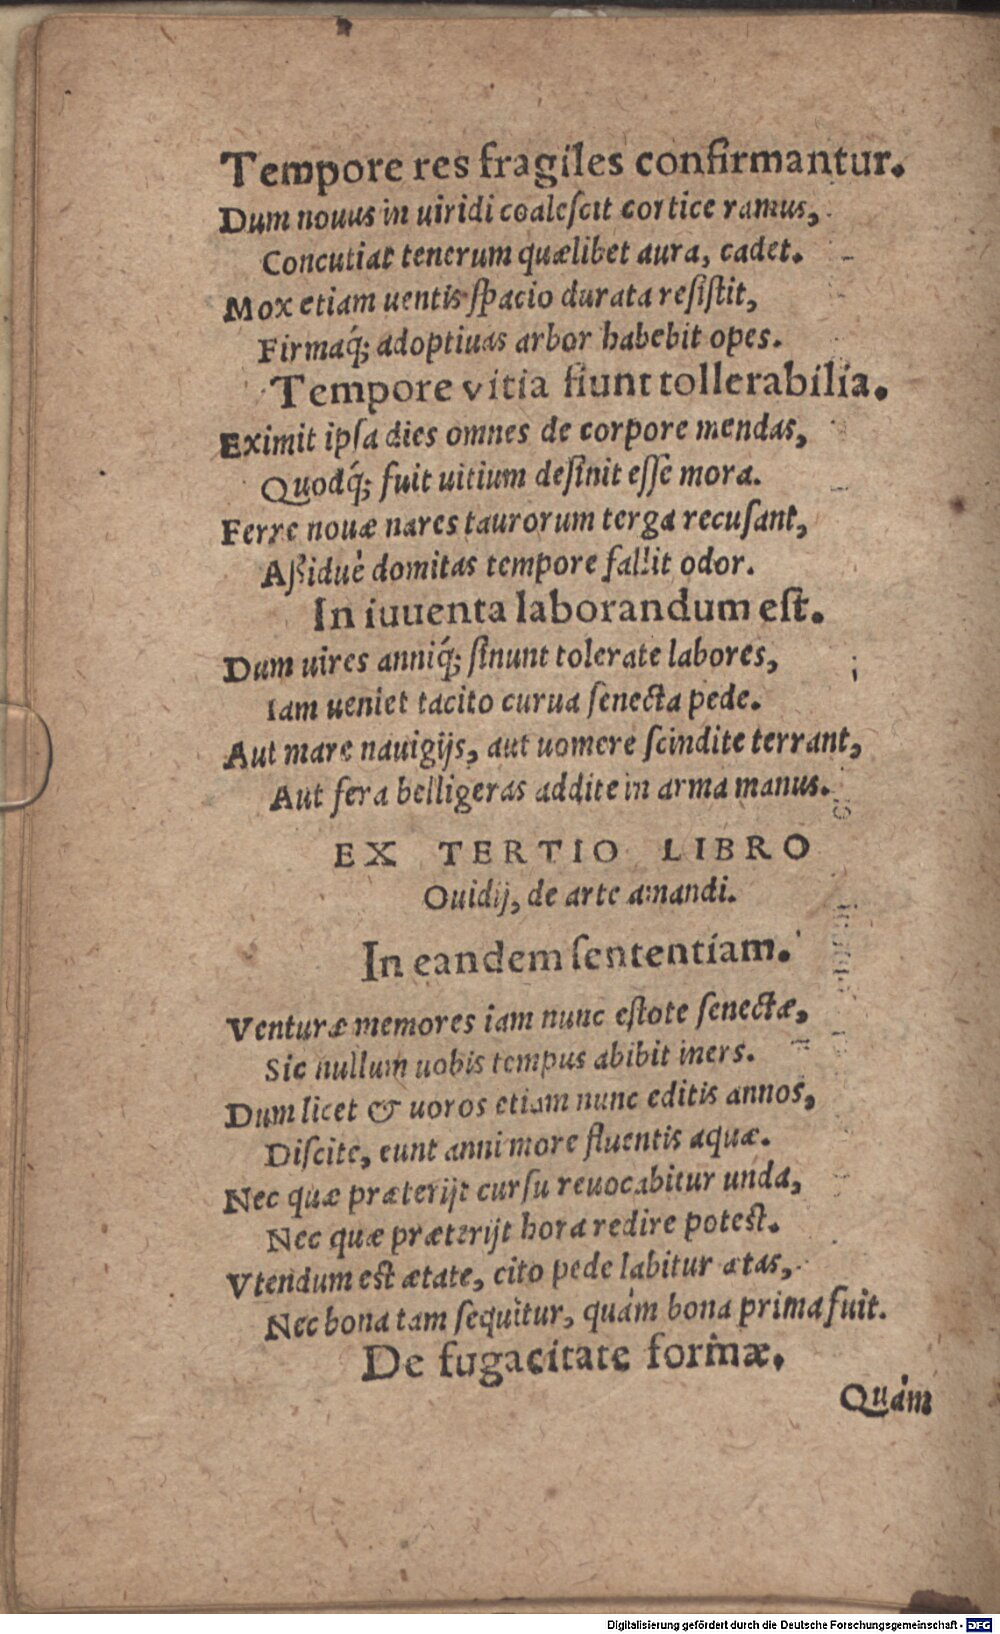 Tempore res fragiles confirmantur.
Dum nouus in uiridi coalescit cortice ramus,
Concutiat tenerum quælibet aura, cadet.
Mox etiam uentis spacio durata resistit,
Firmaq́; adoptiuas arbor habebit opes.
Tempore vitia fiunt tollerabilia.
Eximit ipsa dies omnes de corpore mendas,
Quodq́; fuit uitium desinit esse mora.
Ferre nouæ nares taurorum terga recusant,
Aßiduè domitas tempore fallit odor.
In iuuenta laborandum est.
Dum uires anniq́; sinunt tolerate labores,
Iam ueniet tacito curua senecta pede.
Aut mare nauigijs, aut uomere scindite terrant,
Aut fera belligeras addite in arma manus.
EX TERTIO LIBRO
Ouidij, de arte amandi.
In eandem sententiam.
Venturæ memores iam nunc estote senectæ,
Sic nullum uobis tempus abibit iners.
Dum licet & uoros etiam nunc editis annos,
Discite, eunt anni more fluentis aquæ.
Nec quæ præterijt cursu reuocabitur unda,
Nec quæ præterijt hora redire potest.
Vtendum est ætate, cito pede labitur ætas,
Nec bona tam sequitur, quàm bona prima fuit.
De fugacitate formæ.
Quàm
Digitalisierung gefördert durch die Deutsche Forschungsgemeinschaft - DFG